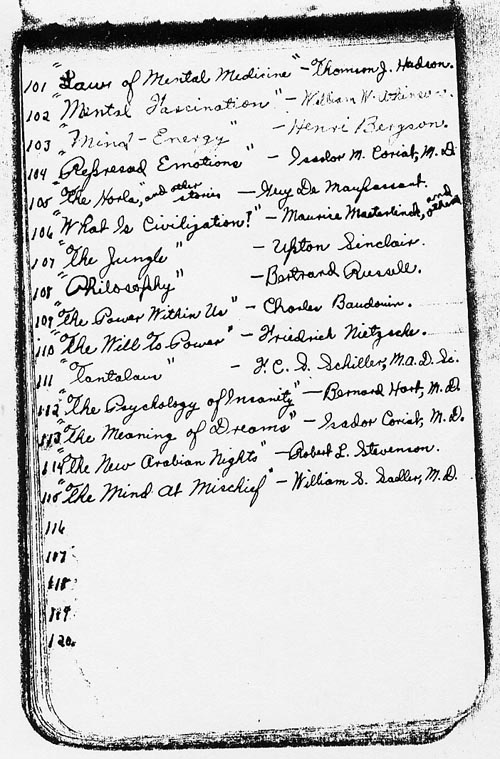 101 "Laws of Mental Medicine" - Thomson J. Hudson.
102 "Mental Fascination" - William W. Atkinson.
103 "Mind-Energy" - Henri Bergson.
104 "Represed Emotions" - Isador M. Coriat, M.D.
105 "The Horla", and other stories - Guy De Maupassant.
106 "What Is Civilization?" - Maurice Maeterlinck, and others
107 "The Jungle" - Upton Sinclair.
108 "Philosophy" - Bertrand Russell.
109 "The Power Within Us" - Charles Baudouin.
110 "The Will To Power" - Friedrich Nietzsche.
111 "Tantalus" - F.C.S. Schiller, M.A.D. Sc.
112 "The Psychology of Insanity" - Bernard Hart, M.D.
113 "The Meaning of Dreams" - Isador Coriat, M.D.
114 "The New Arabian Nights" - Robert L. Stevenson.
115 "The Mind At Mischief" - William S. Sadler, M.D.
116
117
118
119
120.